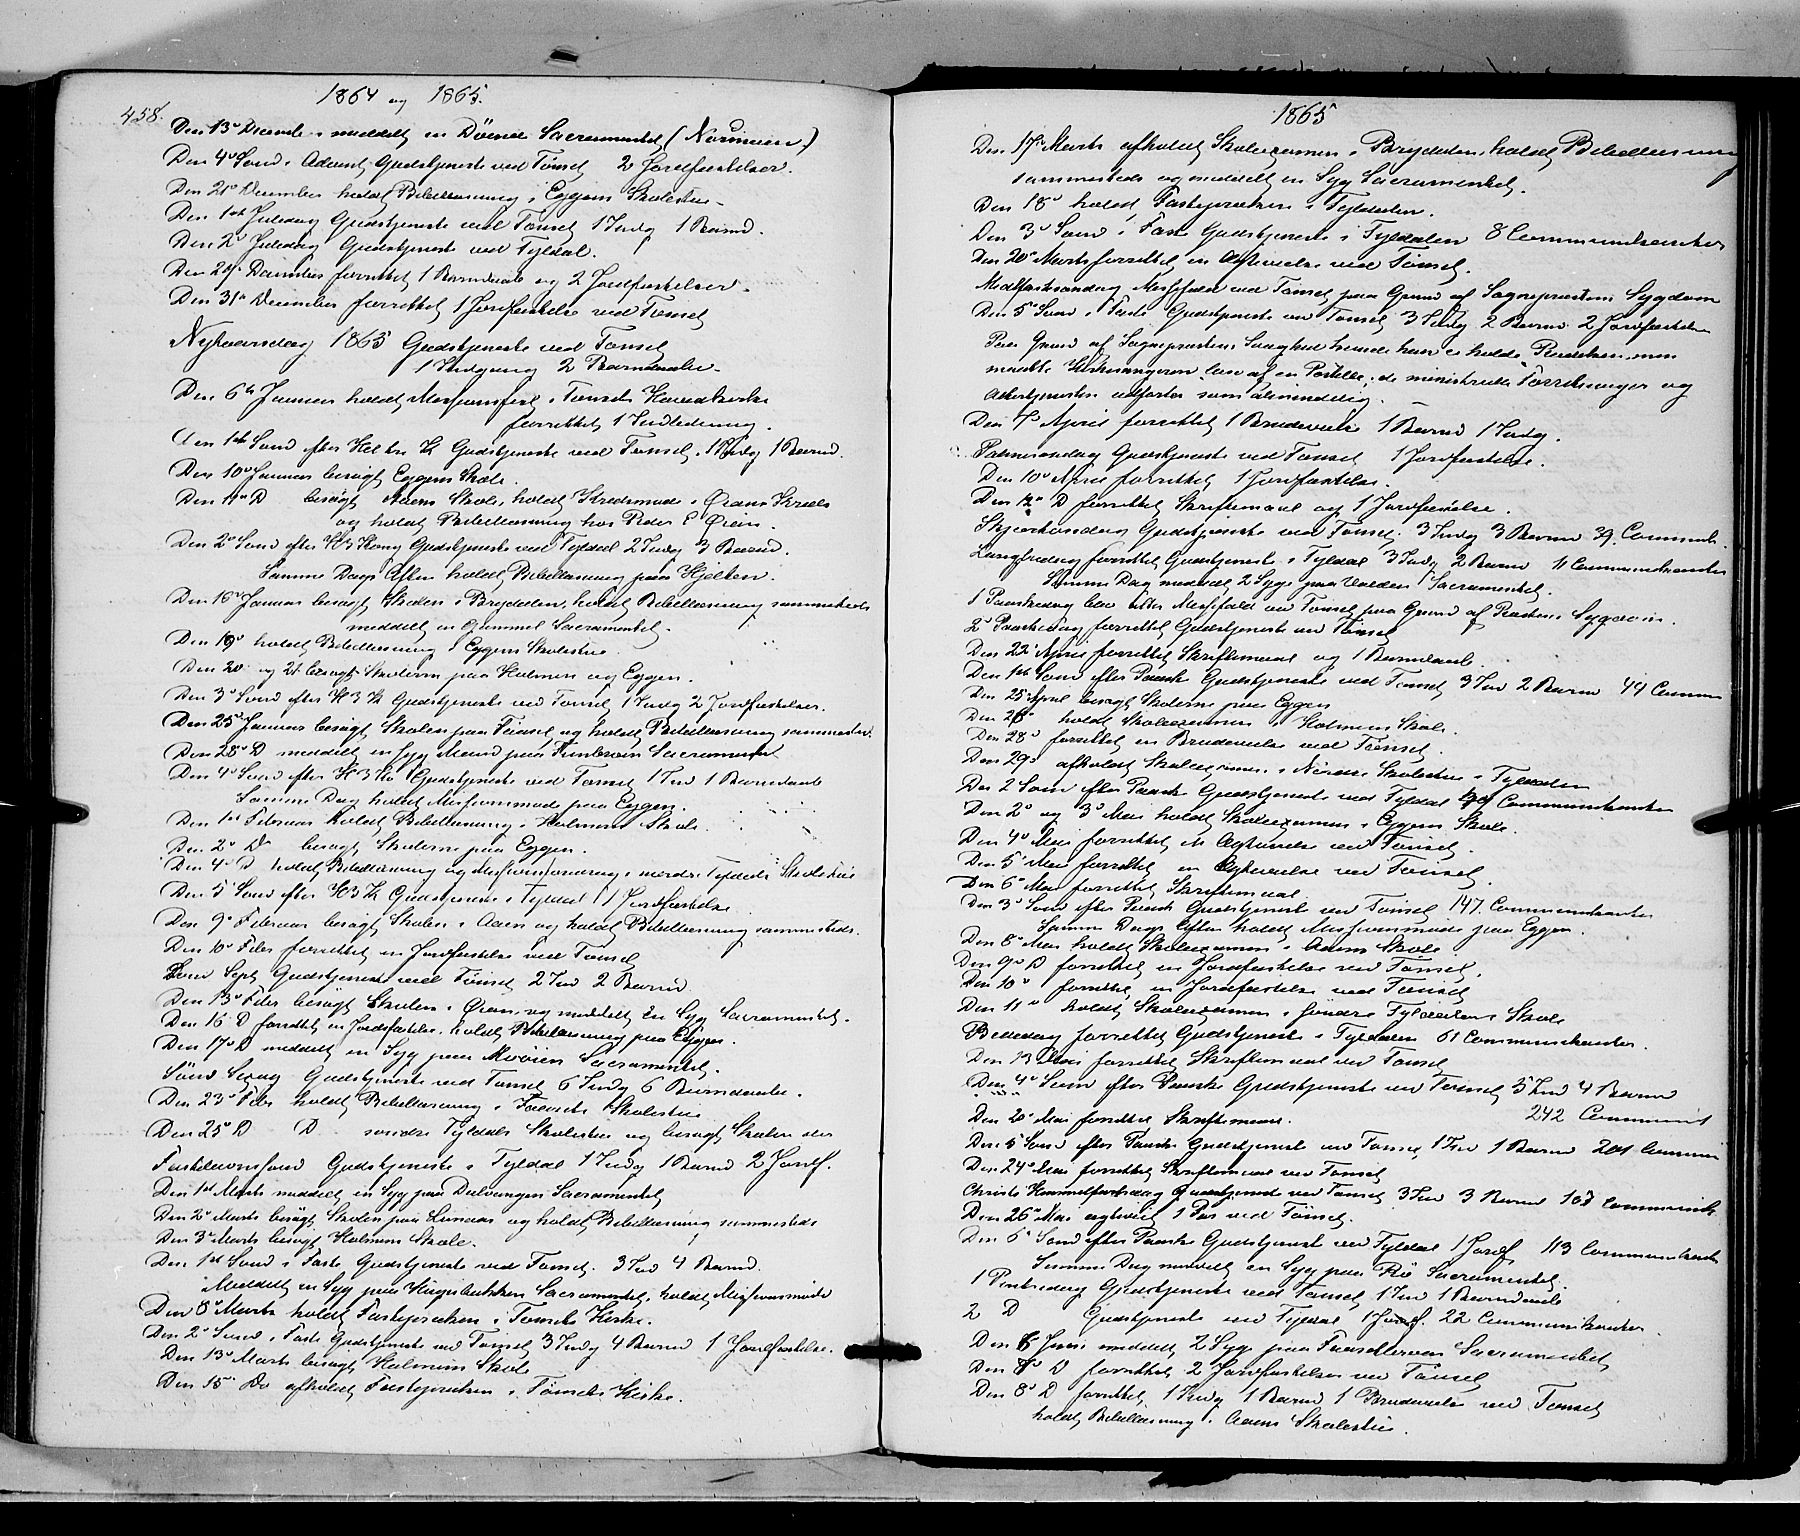 458.
1864 og 1865.
Den 13de Decemb. meddelt en Döende Sacramentet (Narmoen)
Den 4de Sönd. i Advent Gudstjeneste ved Tönset 2 Jordfæstelser.
Den 21de December holdt Bibellæsning i Eggens Skolestue
Den 1ste Juledag Gudstjeneste ved Tönset 1 Indg 1 Barnd.
Den 2den Juledag Gudstjeneste ved Tyldal.
Den 29de December forrettet 1 Barndaab og 2 Jordfæstelser.
Den 31te December forrettet 1 Jordfæstelse ved Tönset
Nytaarsdag 1865 Gudstjeneste ved Tönset
1 Indgang 2 Barndaabe.
Den 6te Januar holdt Missionsfest i Tönsets Hovedkirke
forrettet 1 Indledning.
Den 1ste Sönd efter Hell 3 K Gudstjeneste ved Tönset. 1 Indg 1 Barnd.
Den 10de Januar besögt Eggens Skole.
Den 11te D besögt Aaens Skole, holdt Kredsmöde i Öiens Kreds
og holdt Bibellæsning hos Peder E Öien.
Den 2den Sönd efter H 3 Kong Gudstjeneste ved Tyldal 2 Indg 3 Barnd.
Samme Dags Aften holdt Bibellæsning paa Hjelten.
Den 16de Januar besögt Skolen i Brydalen, holdt Bibellæsning sammesteds
meddelt en Gammel Sacramentet.
Den 19de holdt Bibellæsning i Eggens Skolestue.
Den 20de og 21 besögt Skolerne paa Holmen og Eggen.
Den 3de Sönd efter H 3 K Gudstjeneste ved Tönset 1 Indg 2 Jordfæstelser.
Den 25de Januar besögt Skolen paa Fæset og holdt Bibellæsning sammesteds.
Den 28de D meddelt en Syg Mand paa Sacrament
Den 4de Sönd efter H 3 K Gudstjeneste ved Tönset 1 Ind 1 Barndaab
Samme Dag holdt Missionsmöde paa Eggen.
Den 1ste Februar holdt Bibellæsning i Holmens Skole.
Den 2den Do besögt Skolerne paa Eggen.
Den 4de D holdt Bibellæsning og Missionslæsning i nordre Tyldals Skolestue
Den 5 Sönd efter H 3 K Gudstjeneste i Tyldal 1 Jordfæstelse
Den 9de Februar besögt Skolen i Aaen og holdt Bibellæsning sammesteds.
Den 10de Febr forrettet en Jordfæstelse ved Tönset
Sönd Sept Gudstjeneste ved Tönset 2 Ind 2 Barnd
Den 13de Febr besögt Skolen i Öien og meddelt en Syg Sacramentet.
Den 16 D forrettet en Jordfæstelse, holdt Bibellæsning paa Eggen.
Den 17de D meddelt en Syg paa Moöien Sacramentet.
Sönd Sexag Gudstjeneste ved Tönset 6 Indg 6 Barndaabe.
Den 23de Febr holdt Bibellæsning i Fæsets Skolestue
Den 25de D D söndre Tyldals Skolestue og besögt Skolen der
Fastelavnssönd Gudstjeneste i Tyldal 1 Indg 1 Barnd 2 Jordf.
Den 1ste Marts meddelt en Syg paa Sacramentet
Den 2den Marts besögt Skolen paa Lunaas og holdt Bibellæsning sammesteds
Den 3de Marts besögt Holmens Skole.
Den 1ste Sönd i Faste Gudstjeneste ved Tönset. 3 Ind 4 Barnd.
Meddelt en Syg paa Sacramentet, holdt Missionsmöde
Den 8de Marts holdt Fasteprædiken i Tönsets Kirke.
Den 2den Sönd i Faste Gudstjeneste ved Tönset 3 Indg 4 Barnd 1 Jordfæstelse.
Den 13de Marts besögt Holmens Skole
Den 15de Do afholdt Fasteprædiken i Tönsets Kirke.
1865
Den 17de Marts afholdt Skoleexamen i Brydalen, holdt Bibellæsning
sammesteds og meddelt en Syg Sacramentet.
Den 18de holdt Fasteprædiken i Tyldalen.
Den 3de Sönd i Faste Gudstjeneste i Tyldalen 8 Communicanter
Den 20de Marts forrettet en Ægtevielse ved Tönset.
Midfastsöndag Messefald ved Tönset paa Grund af Sognepræstens Sygdom
Den 5te Sönd i Faste Gudstjeneste ved Tönset 3 Indg 2 Barnd. 2 Jordfæstelser
Paa Grund af Sognepræstens Svaghed kunde han ei holde Prædiken, men
maatte Kirkesangeren læse af en Postille; de ministrielle Forretninger og
Altertjenesten udfortes som almindelig.
Den 7de April forrettet 1 Brudevielse 1 Barnd 1 Indg.
Palmesöndag Gudstjeneste ved Tönset 1 Jordfæstelse.
Den 10de April forrettet 1 Jordfæstelse.
Den 12te D forrettet Skriftemaal og 1 Jordfæstelse.
Skjærtorsdag Gudstjeneste ved Tönset. 3 Indg 3 Barnd 39. Commun.
Langfredag forrettet Gudstjeneste i Tyldal 3 Indg 2 Barnd 11 Communikanter
Samme Dag meddelt 2 Syge paa Sacramentet.
1 Paaskedag blev Messefald ved Tönset paa Grund af Præstens Sygdom.
2den Paaskedag forrettet Gudstjeneste ved Tönset
Den 22 April forrettet Skriftemaal og 1 Barndaab.
Den 1ste Sönd efter Paaske Gudstjeneste ved Tönset 3 Ind 2 Barnd 44 Commun
Den 25de April besögt Skolerne paa Eggen
Den 26de holdt Skoleexamen i Holmens Skole.
Den 28de forrettet en Brudevielse ved Tönset.
Den 29de afholdt Skoleexamen i Nordre Skolestue i Tyldalen
Den 2 Sönd efter Paaske Gudstjeneste ved Tyldal Communikanter
Den 2den og 3de Mai holdt Skoleexamen i Eggens Skole.
Den 4de Mai forrettet en Ægtevielse ved Tönset.
Den 5 Mai forrettet en Ægtevielse ved Tönset.
Den 6te Mai forrettet Skriftemaal
Den 3de Sönd efter Paaske Gudstjeneste ved Tönset 147. Communikanter
Samme Dags Aften holdt Missionsmöde paa Eggen.
Den 8de Mai holdt Skoleexamen i Aaens Skole.
Den 9de D forrettet en Jordfæstelse ved Tönset.
Den 10de forrettet en Jordfæstelse ved Tönset
Den 11te holdt Skoleexamen i Söndre Tyldalens Skole
Bededag forrettet Gudstjeneste i Tyldalen 61 Communikanter.
Den 13 Mai forrettet Skriftemaal ved Tönset
Den 4de Sönd efter Paaske Gudstjeneste ved Tönset 5 Ind 4 Barnd
242 Communi
Den 20de Mai forrettet Skriftemaal.
Den 5 Sönd efter Paaske Gudstjeneste ved Tönset 1 Ind 1 Barnd 201 Commun
Den 24de Mai forrettet Skriftemaal ved Tönset
Christi Himmelfartsdag Gudstjeneste ved Tönset 3 Ind 3 Barnd 107 Communik
Den 26de Mai ægteviet 1 Par ved Tönset.
Den 6te Sönd efter Paaske Gudstjeneste ved Tyldal 1 Jordf 113 Communikant
Samme Dag meddelt en Syg paa Rö Sacramentet.
1 Pintsedag Gudstjeneste ved Tönset 1 Ind 1 Barndaab
2 D Gudstjeneste ved Tyldal 1 Jordf. 22 Communikanter.
Den 6 Juni meddelt 2 Syge paa Sacramentet
Den 8de D forrettet 2 Jordfæstelser ved Tönset
Den 8de D forrettet 1 Indg 1 Barnd 1 Brudevielse ved Tönset
holdt Bibellæsning i Aaens Skolestue.